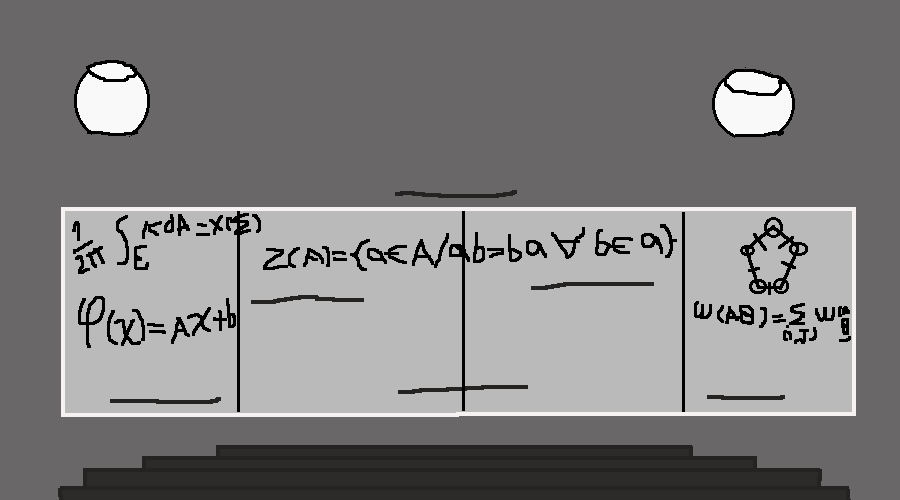 1/2π ∫E K dA = χ(E)
φ(x)=Ax+b
Z(A)={a∈A/ab=ba ∀ b∈a}
W(AB)=Σ(i,j) W